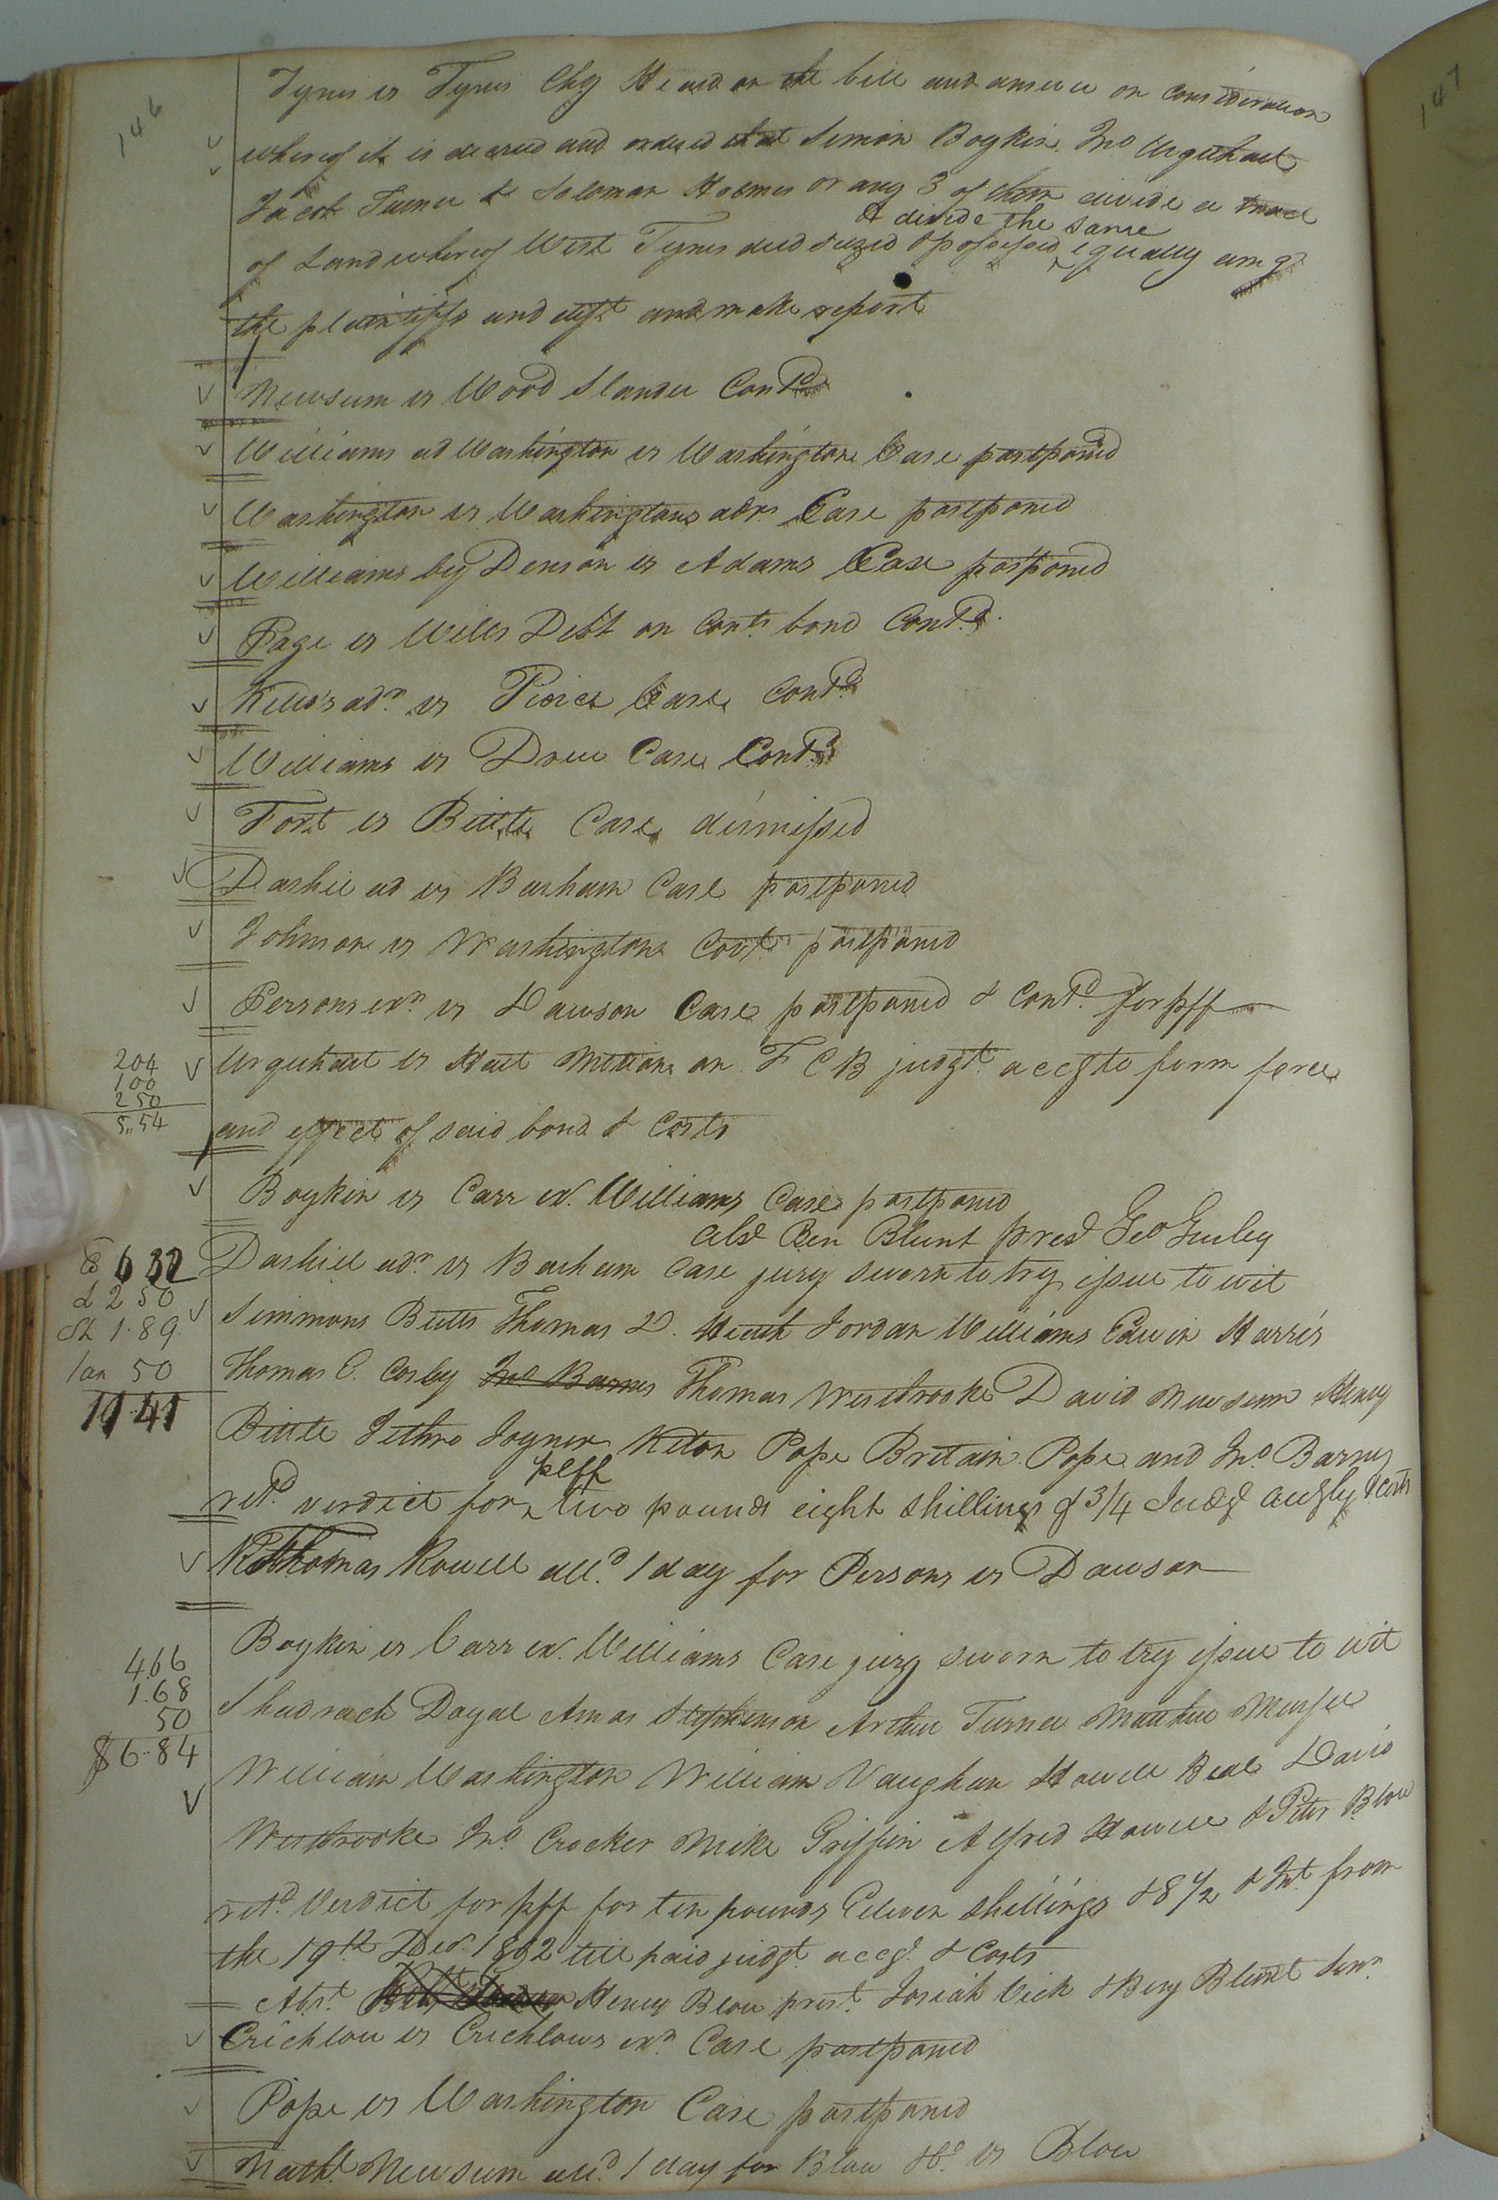 146
147
Tynes vs Tynes Chy Heard on the bill and answer on consideration
whereof it is decreed and ordered that Simon Boykin Jno Urquhart
Jacob Turner & Solomon Holmes or any 3 of them divide a tract
& divide the same
of Land whereof West Tynes died seized & possessed equally amg
the plaintiffs and deft and make report
Newsum vs Wood Slander Contd
Williams ad Washington vs Washington Case postponed
Washington vs Washingtons adm Case postponed
Williams by Denson vs Adams Case postponed
Page vs Wills Debt on bond Contd
adr vs Pierce Case Contd
Williams vs Drew Case Contd
Fort vs Bittle Case dismissed
Dashiel ad vs Barham Case postponed
Johnson vs Washington postponed
Persons exr vs Lawson Case postponed & Contd for pff
204
100
250
5..54
Urquhart vs Hart Motion on F C B judgt accg to form force
and effect of said bond & Costs
Boykin vs Carr ex. Williams Case postponed
abst Ben Blunt prest Geo Gurley
Dashiell adr vs Barham Case jury sworn to try issue to wit
6 32
2 50
Sh 1.89
50
11.41
Simmons Butts Thomas D. Heath Jordan Williams Edwin Harris
Thomas C. Cosby Jno Barnes Thomas Westbrooke David Newsum Henry
Bittle Jethro Joyner Keton Pope Britain Pope and Jno Barnes
plff
retd verdict for two pounds eight shillings & 3/4 Judgt accgly & costs
Thomas Rowell alld 1 day for Persons vs Lawson
Boykin vs Carr ex. Williams Case jury sworn to try issue to wit
4.66
1.68
50
$6.84
Shadrach Doyal Amos Stephenson Arthur Turner Matthew Murfee
William Washington William Vaughan Howell Beal David
Westbrooke Jno Crocker Mike Griffin Alfred Howell & Peter Blow
retd Verdict for pff for ten pounds Eleven Shillings & 8 1/2 & Int from
the 19th Decr 1802 till paid judgt accg. & Costs
Abst Henry Blow prest Josiah Vick & Benj Blunt Senr
Crichlow vs Crichlows exr Case postponed
Pope vs Washington Case postponed
Mathw Newsum alld 1 day for Blow vs Blow